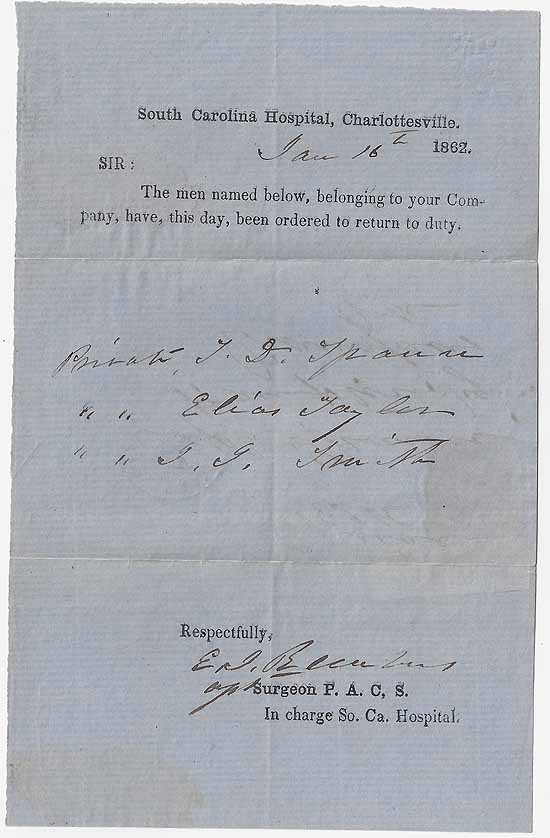 South Carolina Hospital, Charlottesville.
Jan 16th 1862.
SIR:
The men named below, belonging to your Com-
pany, have, this day, been ordered to return to duty.
Private, T. D. Spann
" " Elias Taylor
" " J. J. Smith
Respectfully,
E. J.
Surgeon P. A. C, S.
In charge So. Ca. Hospital.